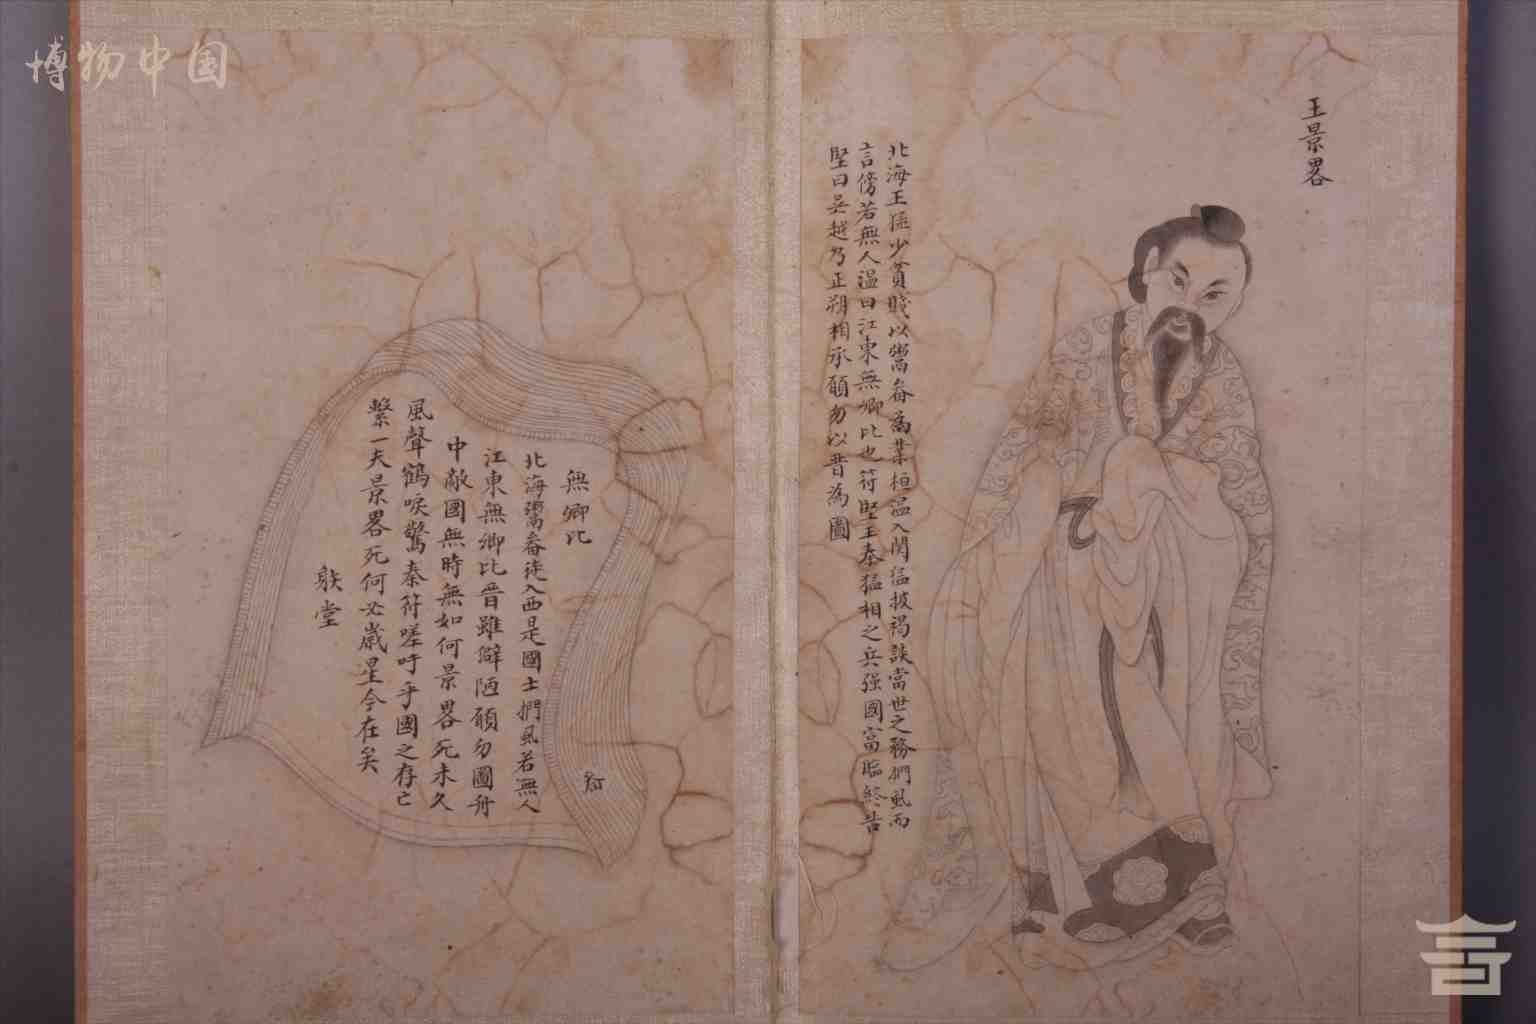 博物中国
王景畧
北海王猛少貧賤以鬻畚爲業桓温入関猛披褐談當世之務捫虱而
言傍若無人温曰江東無卿比也苻堅王秦猛相之兵强國富臨終告
堅曰吴越乃正朔相承願勿以晋為圖
無卿比
北海鬻畚徒入西是國士捫虱若無人
江東無卿比晋雖僻陋願勿圖舟
中敵國無時無如何景畧死未久
風聲鶴唳驚秦苻嗟吁乎國之存亡
繫一夫景畧死何必歲星今在矣
躲堂